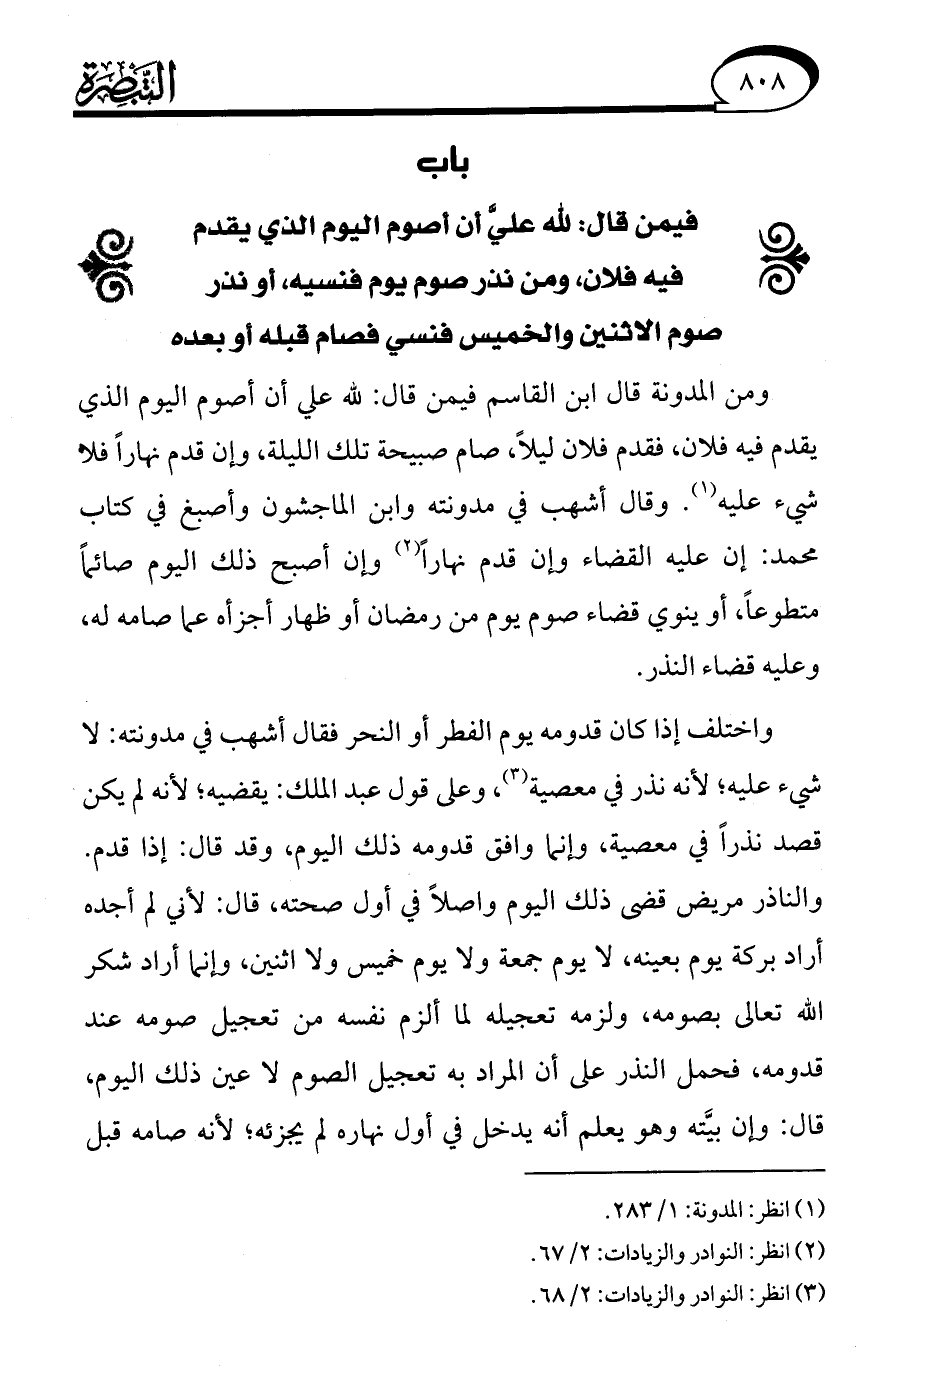 ٨٠٨
التبصرة
باب
فيمن قال: لله عليَّ أن أصوم اليوم الذي يقدم
فيه فلان، ومن نذر صوم يوم فنسيه، أو نذر
صوم الاثنين والخميس فنسي فصام قبله أو بعده
ومن المدونة قال ابن القاسم فيمن قال: لله علي أن أصوم اليوم الذي
يقدم فيه فلان، فقدم فلان ليلاً، صام صبيحة تلك الليلة، وإن قدم نهاراً فلا
شيء عليه(١). وقال أشهب في مدونته وابن الماجشون وأصبغ في كتاب
محمد: إن عليه القضاء وإن قدم نهاراً(٢) وإن أصبح ذلك اليوم صائماً
متطوعاً، أو ينوي قضاء صوم يوم من رمضان أو ظهار أجزأه عما صامه له،
وعليه قضاء النذر.
واختلف إذا كان قدومه يوم الفطر أو النحر فقال أشهب في مدونته: لا
شيء عليه؛ لأنه نذر في معصية(٣)، وعلى قول عبد الملك: يقضيه؛ لأنه لم يكن
قصد نذراً في معصية، وإنما وافق قدومه ذلك اليوم، وقد قال: إذا قدم.
والناذر مريض قضى ذلك اليوم واصلاً في أول صحته، قال: لأني لم أجده
أراد بركة يوم بعينه، لا يوم جمعة ولا يوم خميس ولا اثنين، وإنما أراد شكر
الله تعالى بصومه، ولزمه تعجيله لما ألزم نفسه من تعجيل صومه عند
قدومه، فحمل النذر على أن المراد به تعجيل الصوم لا عين ذلك اليوم،
قال: وإن بيَّته وهو يعلم أنه يدخل في أول نهاره لم يجزئه؛ لأنه صامه قبل
(١) انظر: المدونة: ١/ ٢٨٣.
(٢) انظر: النوادر والزيادات: ٢/ ٦٧.
(٣) انظر: النوادر والزيادات: ٢/ ٦٨.